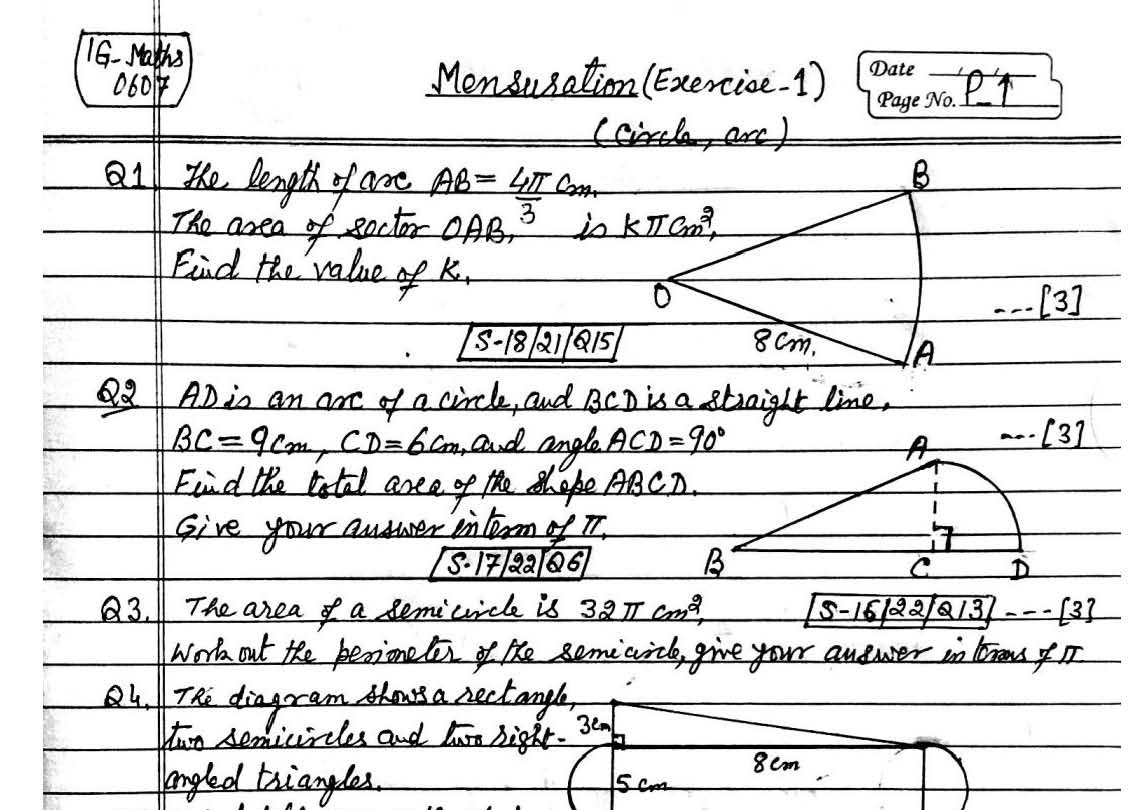 IG-Maths
0607
Mensuration (Exercise-1)
(Circle, arc)
Date
Page No. P-1
Q1 The length of arc AB = 4π/3 cm.
The area of sector OAB, is Kπcm²,
Find the value of K.
---[3]
S-18/21/Q15
O
B
A
8cm.
Q2 AD is an arc of a circle, and BCD is a straight line,
BC = 9cm, CD = 6cm, and angle ACD = 90°
---[3]
Find the total area of the shape ABCD.
Give your answer in term of π.
S-17/22/Q6
A
B
C
D
Q3. The area of a semicircle is 32π cm²,
S-16/22/Q13 ---[3]
Work out the perimeter of the semicircle, give your answer in terms of π
Q4. The diagram shows a rectangle,
two semicircles and two right-
angled triangles.
3cm
8cm
5cm